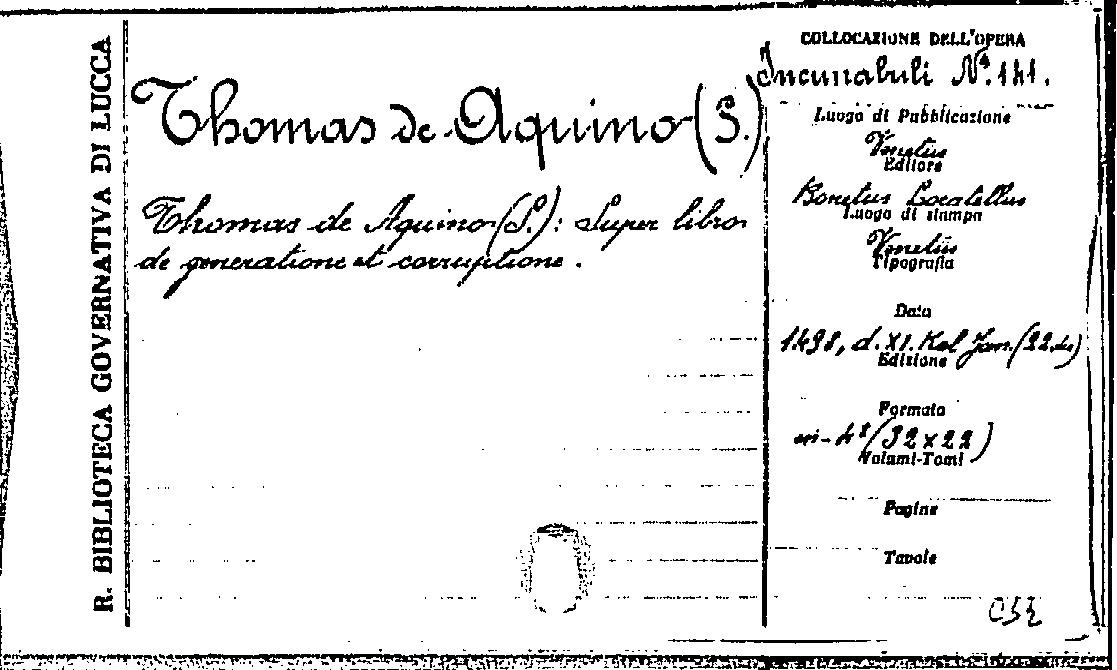 R. BIBLIOTECA GOVERNATIVA DI LUCCA
Thomas de Aquino (S.)
Thomas de Aquino (S.): Super libros
de generatione et corruptione.
COLLOCAZIONE DELL'OPERA
Incunabuli Nº. 141.
Luogo di Pubblicazione
Venetiis
Editore
Bonetus Locatellus
Luogo di stampa
Venetiis
Tipografia
Data
1498, d. XI. Kal Jan. (22 dic)
Edizione
Formato
in-4º (32 x 22)
Volumi-Tomi
Pagine
Tavole